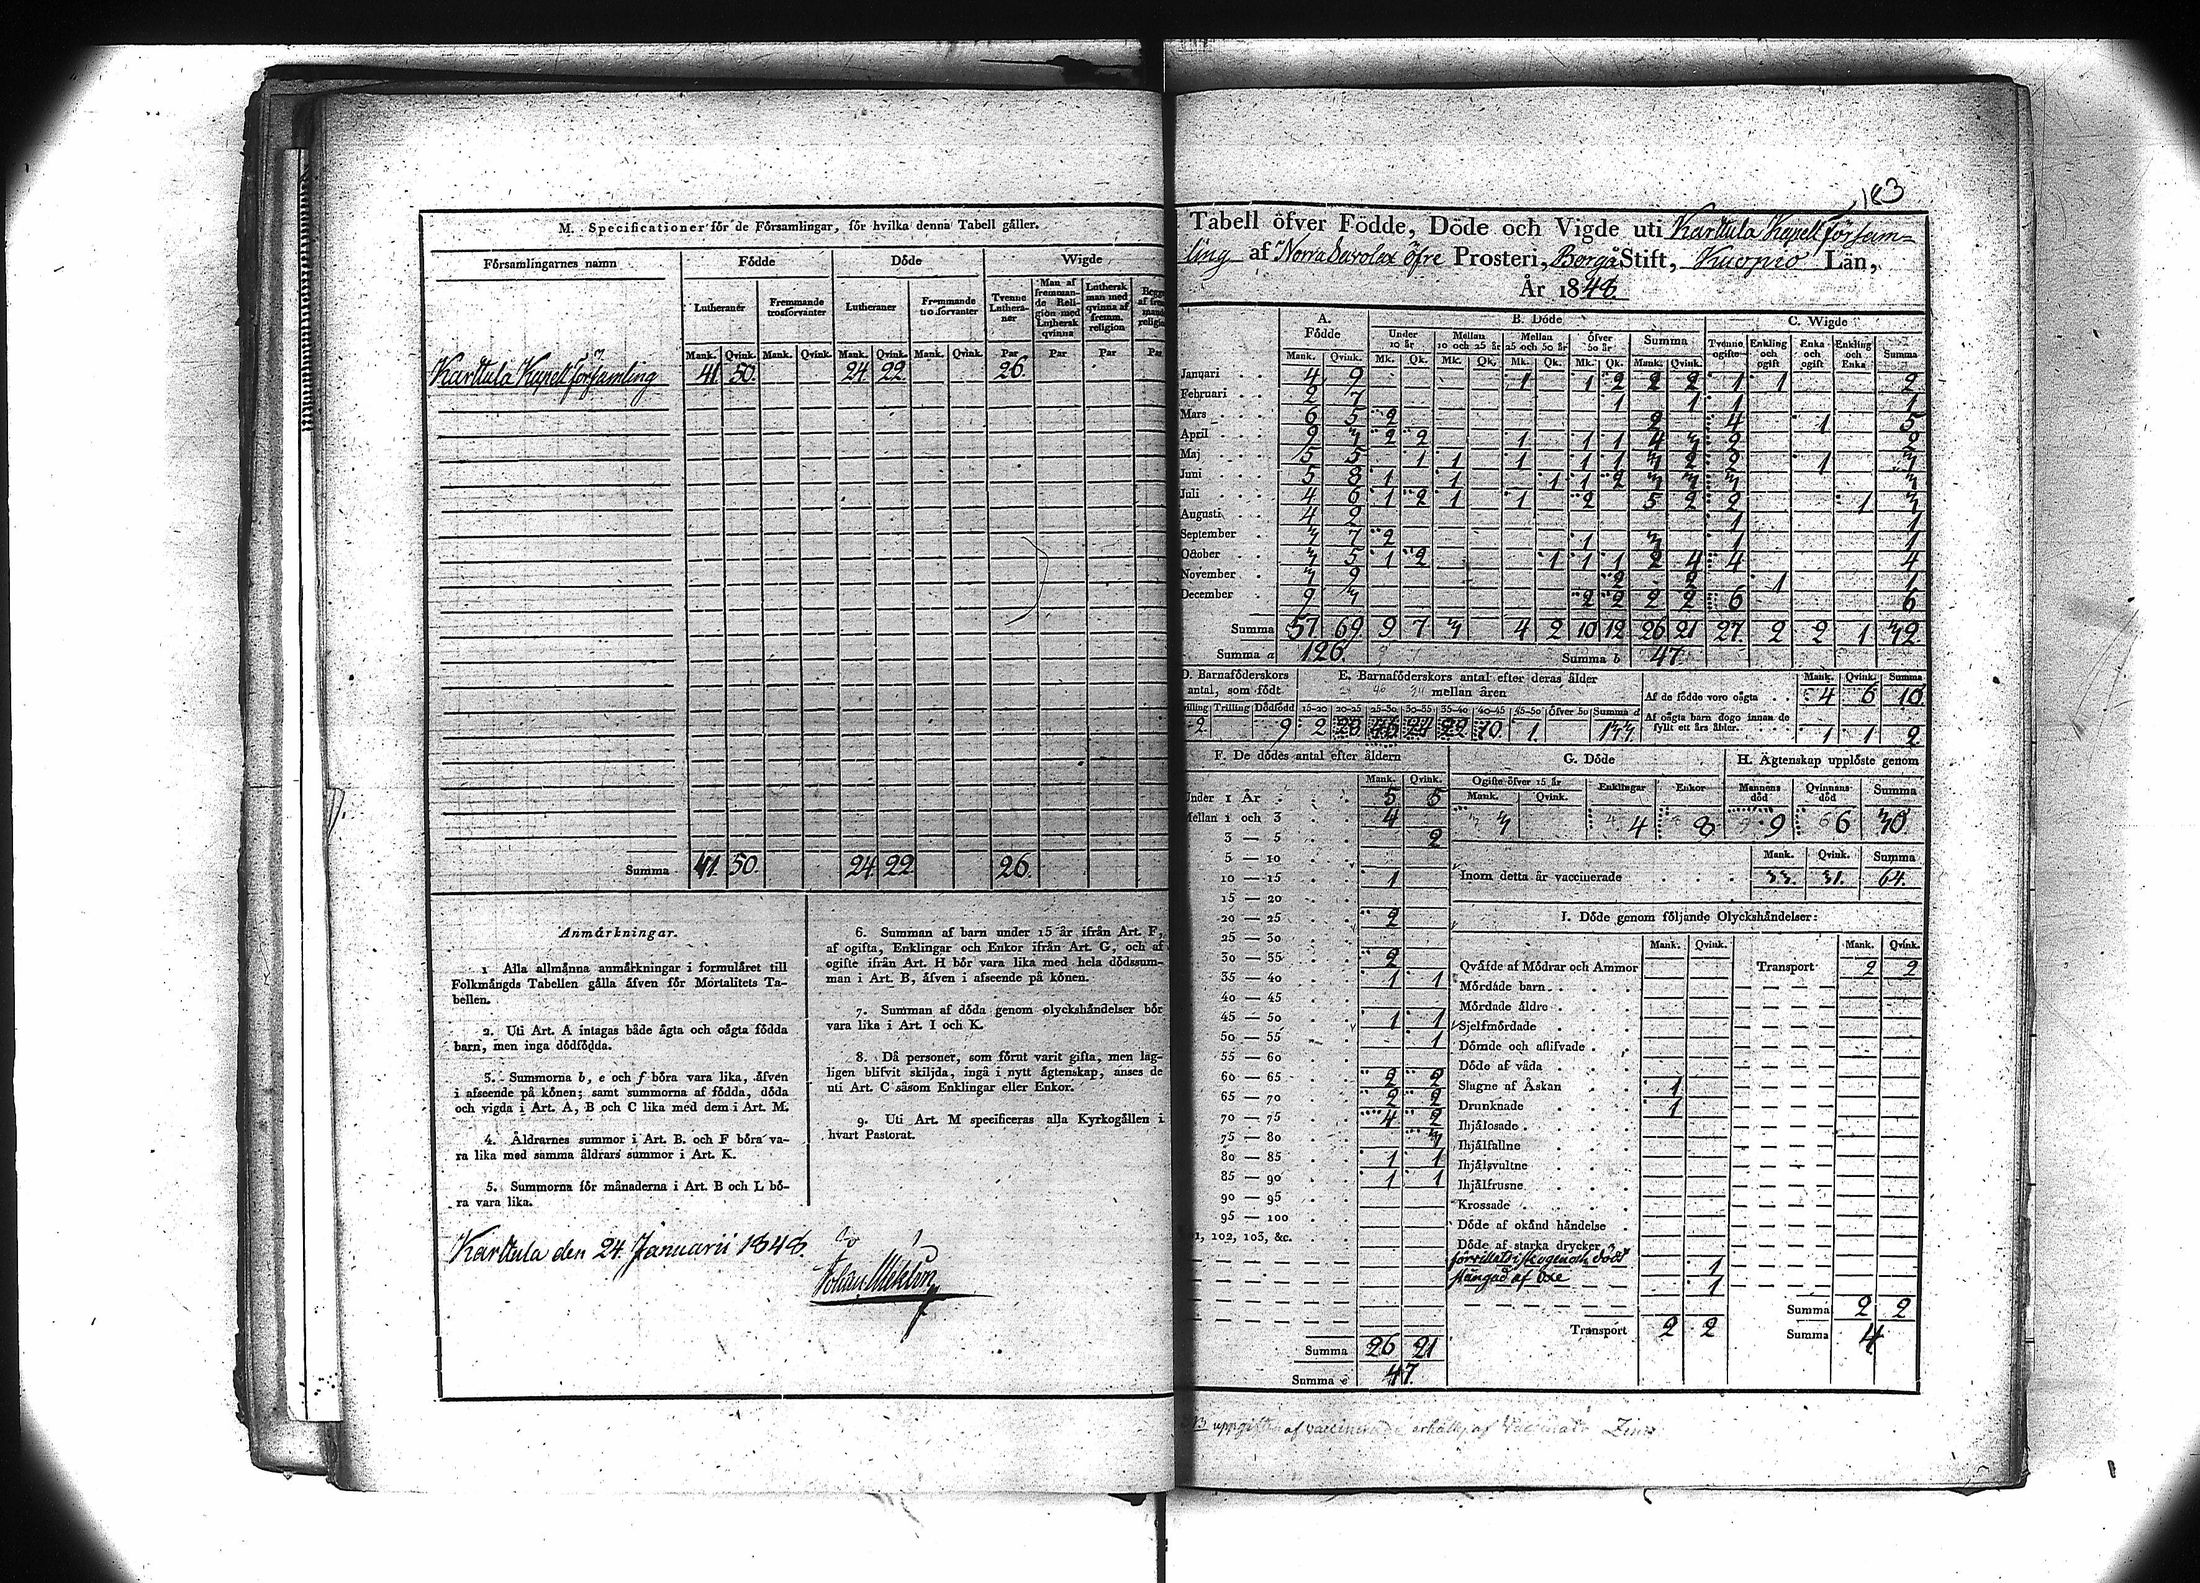 M. Specificationer för de Församlingar, för hvilka denna Tabell gäller.
Församlingarnes namn Födde Döde Wigde
Lutheraner Fremmande trosförvanter Lutheraner Fremmande trosförvanter Tvenne Lutheraner Man af fremmande Religion med Luthersk qvinna Luthersk man med qvinna af fremm. religion
Mank. Qvink. Mank. Qvink. Mank. Qvink. Mank. Qvink. Par Par Par Par
Karttula Kapell församling 41 50. 24 22. 26.
Summa 41. 50. 24 22 26.
Anmärkningar.
1 Alla allmänna anmärkningar i formuläret till
Folkmängds Tabellen gälla äfven för Mortalitets Ta-
bellen.
2. Uti Art. A intagas både ägta och oägta födda
barn, men inga dödfödda.
3. Summorna b, e och f böra vara lika, äfven
i afseende på könen; samt summorna af födda, döda
och vigda i Art. A, B och C lika med dem i Art. M.
4. Åldrarnes summor i Art. B. och F böra va-
ra lika med samma åldrars summor i Art. K.
5. Summorna för månaderna i Art. B och L bö-
ra vara lika.
6. Summan af barn under 15 år ifrån Art. F,
af ogifta, Enklingar och Enkor ifrån Art. G, och af
ogifte ifrån Art. H bör vara lika med hela dödssum-
man i Art. B, äfven i afseende på könen.
7. Summan af döda genom olyckshändelser bör
vara lika i Art. I och K.
8. Då personer, som förut varit gifta, men lag-
ligen blifvit skiljda, ingå i nytt ägtenskap, anses de
uti Art. C såsom Enklingar eller Enkor.
9. Uti Art. M specificeras alla Kyrkogällen i
hvart Pastorat.
Karttula den 24 Januarii 1848.
183
Tabell öfver Födde, Döde och Vigde uti Karttula Kapell församling
af Norra Savolax öfre Prosteri, Borgå Stift, Kuopio Län,
År 1848.
A. Födde B. Döde C. Wigde
Under 10 år Mellan 10 och 25 år Mellan 25 och 50 år Öfver 50 år Summa Tvenne ogifte Enkling och ogift Enka och ogift Enkling och Enka Summa
Mank. Qvink. Mk. Qk. Mk. Qk. Mk. Qk. Mk. Qk. Mank. Qvink.
Januari 4 9 1 1 2 2 2 1 1 2
Februari 2 7 1 1 1 1
Mars 6 5 2 2 4 1 5
April 9 3 2 2 1 1 1 4 3 2 2
Maj 5 5 1 1 1 1 1 3 2 2 1 3
Juni 5 8 1 1 1 1 2 3 3 3 3
Juli 4 6 1 2 1 1 2 5 2 2 1 3
Augusti 4 2 1 1
September 3 7 2 1 3 1 1
October 3 5 1 2 1 1 1 2 4 4 4
November 3 9 2 2 1 1
December 9 3 2 2 2 2 6 6
Summa 57. 69. 9 7 3 4 2 10 12 26 21 27. 2 2 1 32
Summa a 126. Summa b 47.
D. Barnaföderskors antal, som födt
E. Barnaföderskors antal efter deras ålder mellan åren
Trilling Dödfödd 15-20 20-25 25-30 30-35 35-40 40-45 45-50 Öfver 50 Summa d
2. 9 2 22 10. 1.
Mank. Qvink. Summa
Af de födde voro oägta 4 6 10.
Af oägta barn dogo innan de fyllt ett års ålder. 1 1 2
F. De dödes antal efter åldern
Mank. Qvink.
Under 1 År 5 5
Mellan 1 och 3 4
3 — 5 2
5 — 10
10 — 15 1
15 — 20
20 — 25 2
25 — 30
30 — 35 2
35 — 40 1 1
40 — 45
45 — 50 1 1
50 — 55 1
55 — 60
60 — 65 2 2
65 — 70 2 2
70 — 75 4 2
75 — 80 3
80 — 85 1 1
85 — 90 1 1
90 — 95
95 — 100
102, 103, &c.
Summa 26 21
Summa e 47.
G. Döde
Ogifte öfver 15 år Enklingar Enkor
Mank. Qvink.
3 4 8
H. Ägtenskap upplöste genom
Mannens död Qvinnans död Summa
9 6
Mank. Qvink. Summa
Inom detta år vaccinerade 33. 31. 64.
I. Döde genom följande Olyckshändelser:
Mank. Qvink. Mank. Qvink.
Qväfde af Mödrar och Ammor Transport 2 2
Mördade barn
Mördade äldre
Sjelfmördade
Dömde och aflifvade
Döde af våda
Slagne af Åskan 1
Drunknade 1
Ihjälosade
Ihjälfallne
Ihjälsvultne
Ihjälfrusne
Krossade
Döde af okänd händelse
Döde af starka drycker
1
stångad af Oxe 1
Transport 2 2
Summa 2 2
Summa 4